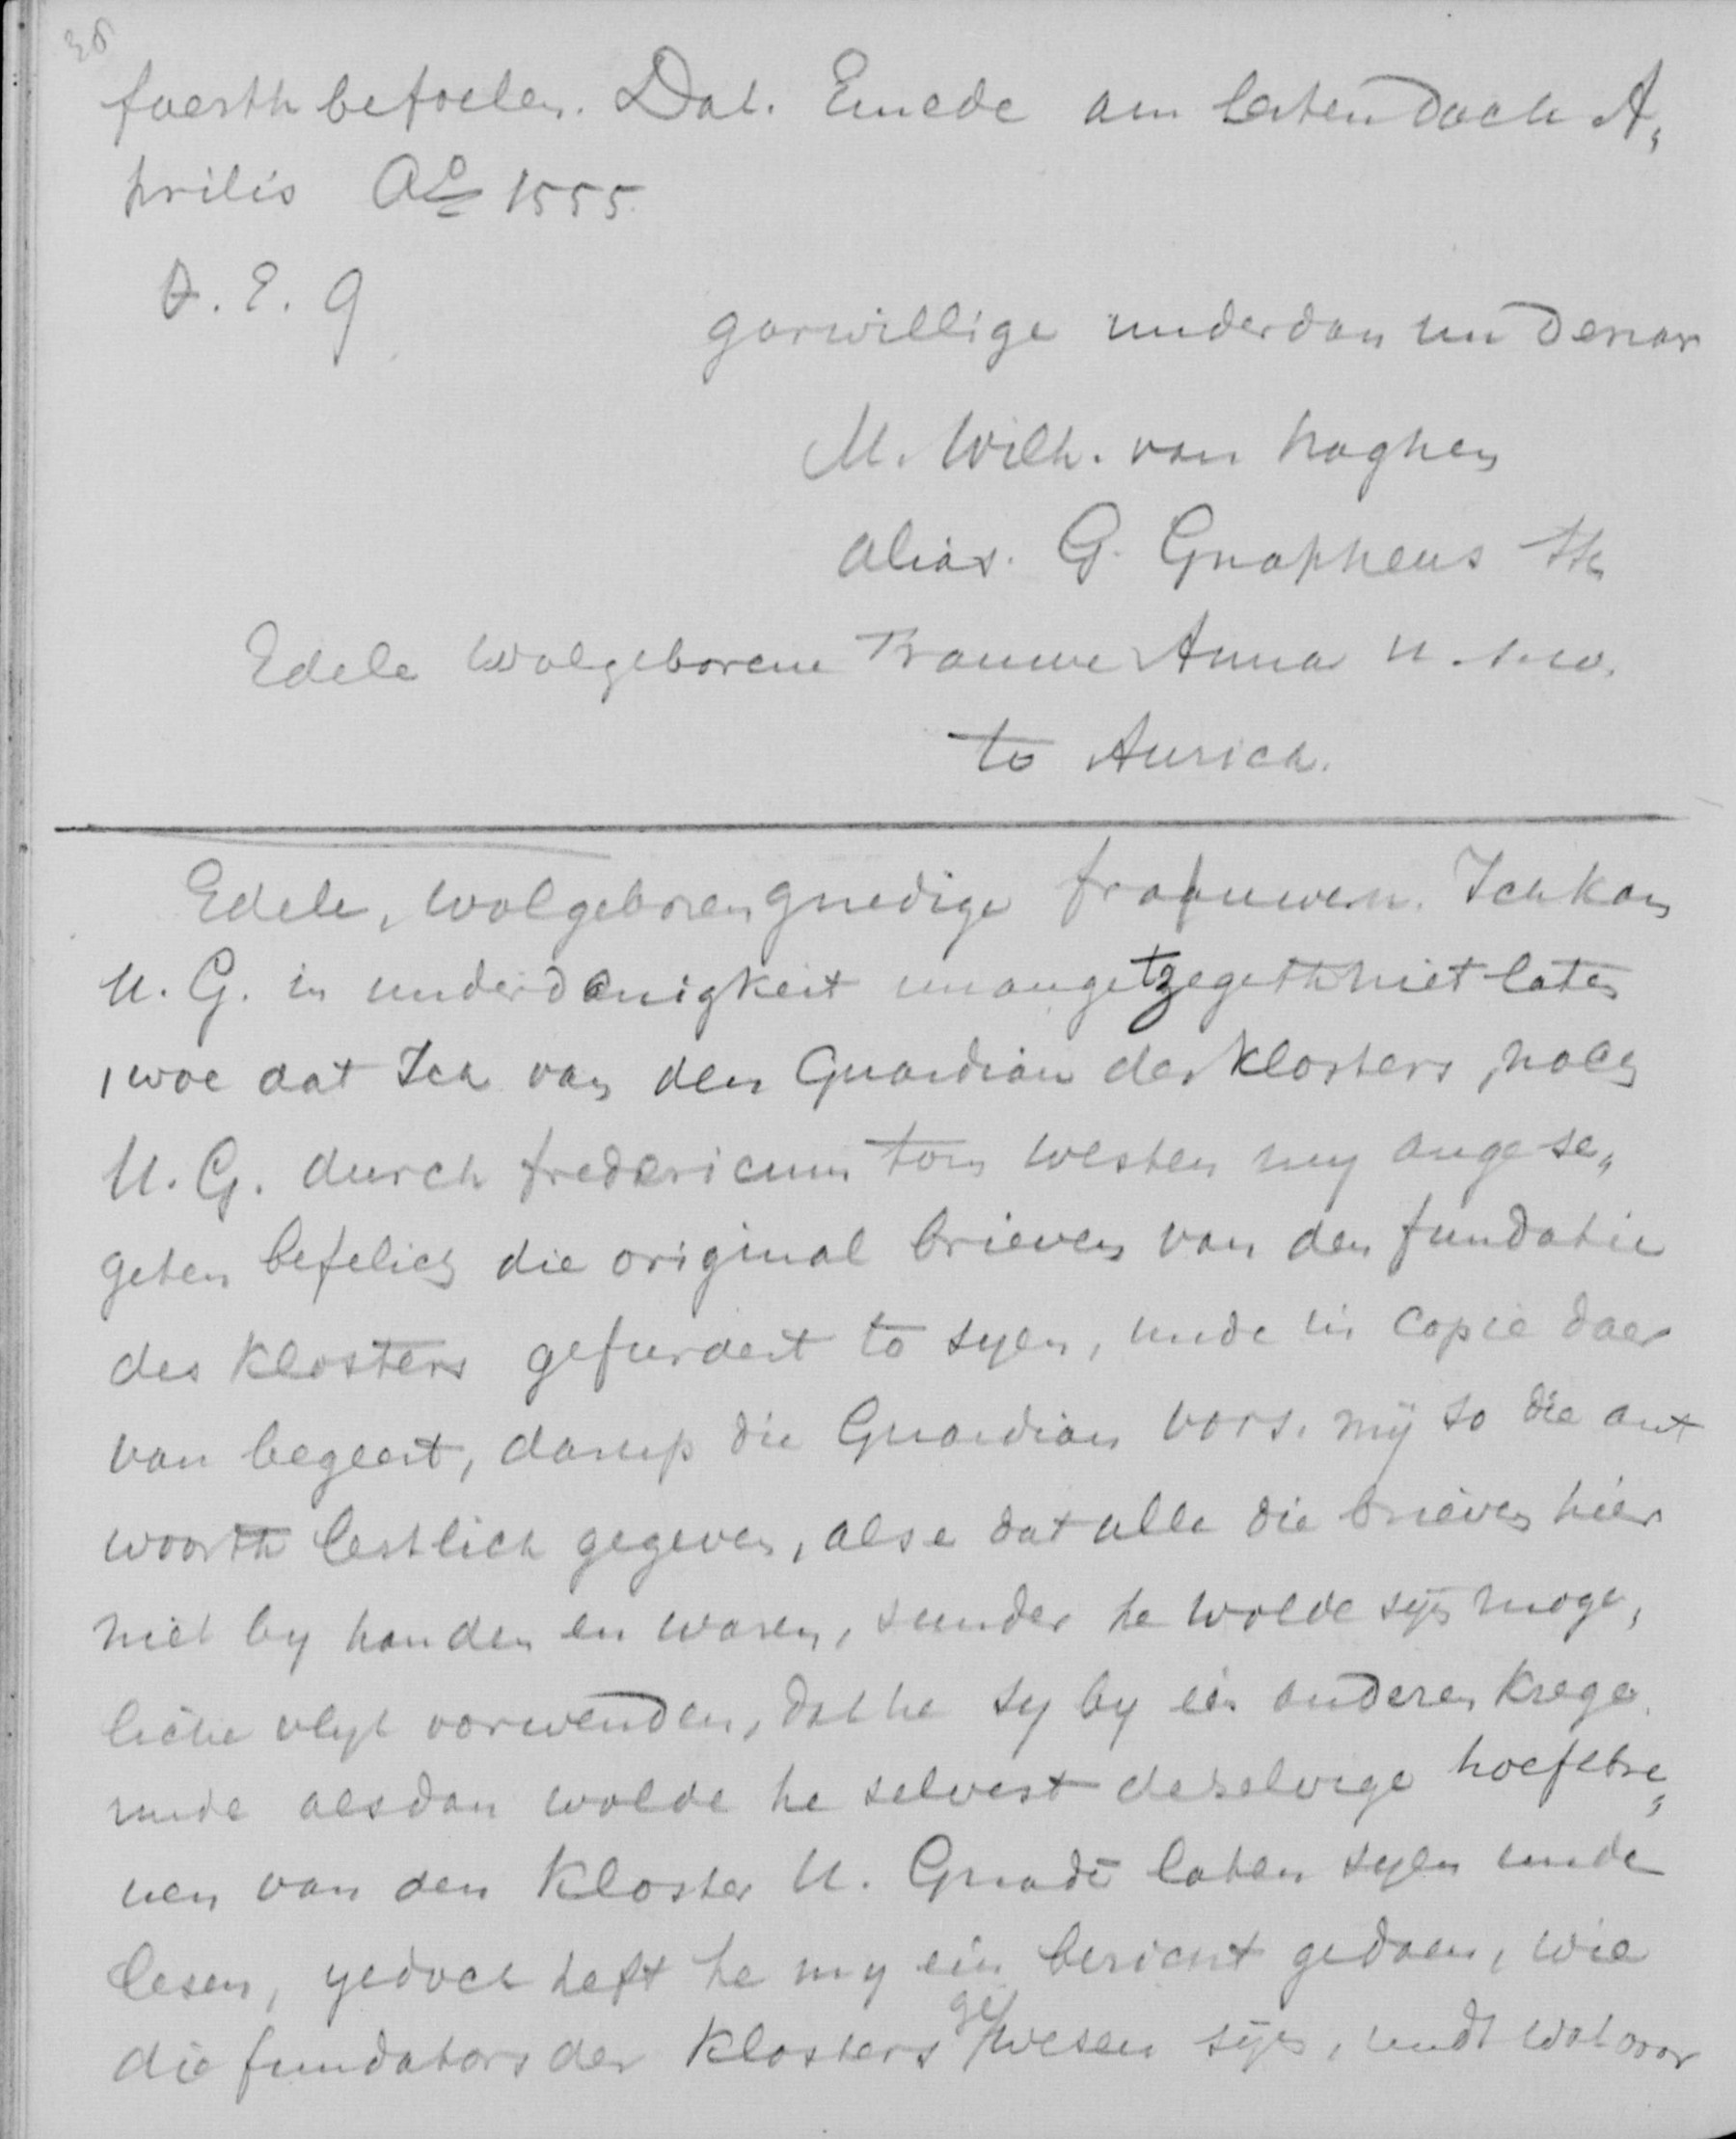 36
foerth befoelen. Dat. Emede am lesten Dach A„
prilis Aº 1555.
D. E. G
gotwillige underdan un Denar
M. Wilh. van haghen
alias. G. Gnapheus sst
Edele wolgeborene Frauwe Anna u. s. w.
to Aurich.
Edele, wolgeboren gnedige frauwen. Ich kan
U. G. in underdanigkeit unangetzegeth niet laten
, woe dat Ick van den Guardian des klosters, nolg
U. G. durch fredericum tom westen my angese„
geten befelich die original brieven van den fundatie
des klosters gefurdert to syen, unde in copie daer
van begeert, darup die Guardian vors. mÿ so die ant
woorth lestlich gegeven, alse dat alle die brieven hier
niet by handen en waren, sunder he wolde syn moge„
liche vlyt vorwenden, dat he sy by ein anderen krege.
unde alsdan wolde he selvest deselvige hoeftbre„
ven van den kloster U. Gnade laten syen unde
lesen, yedoch heft he my ein bericht gedaen, wie
die fundators des klosters gewesen syn, undt wat voor